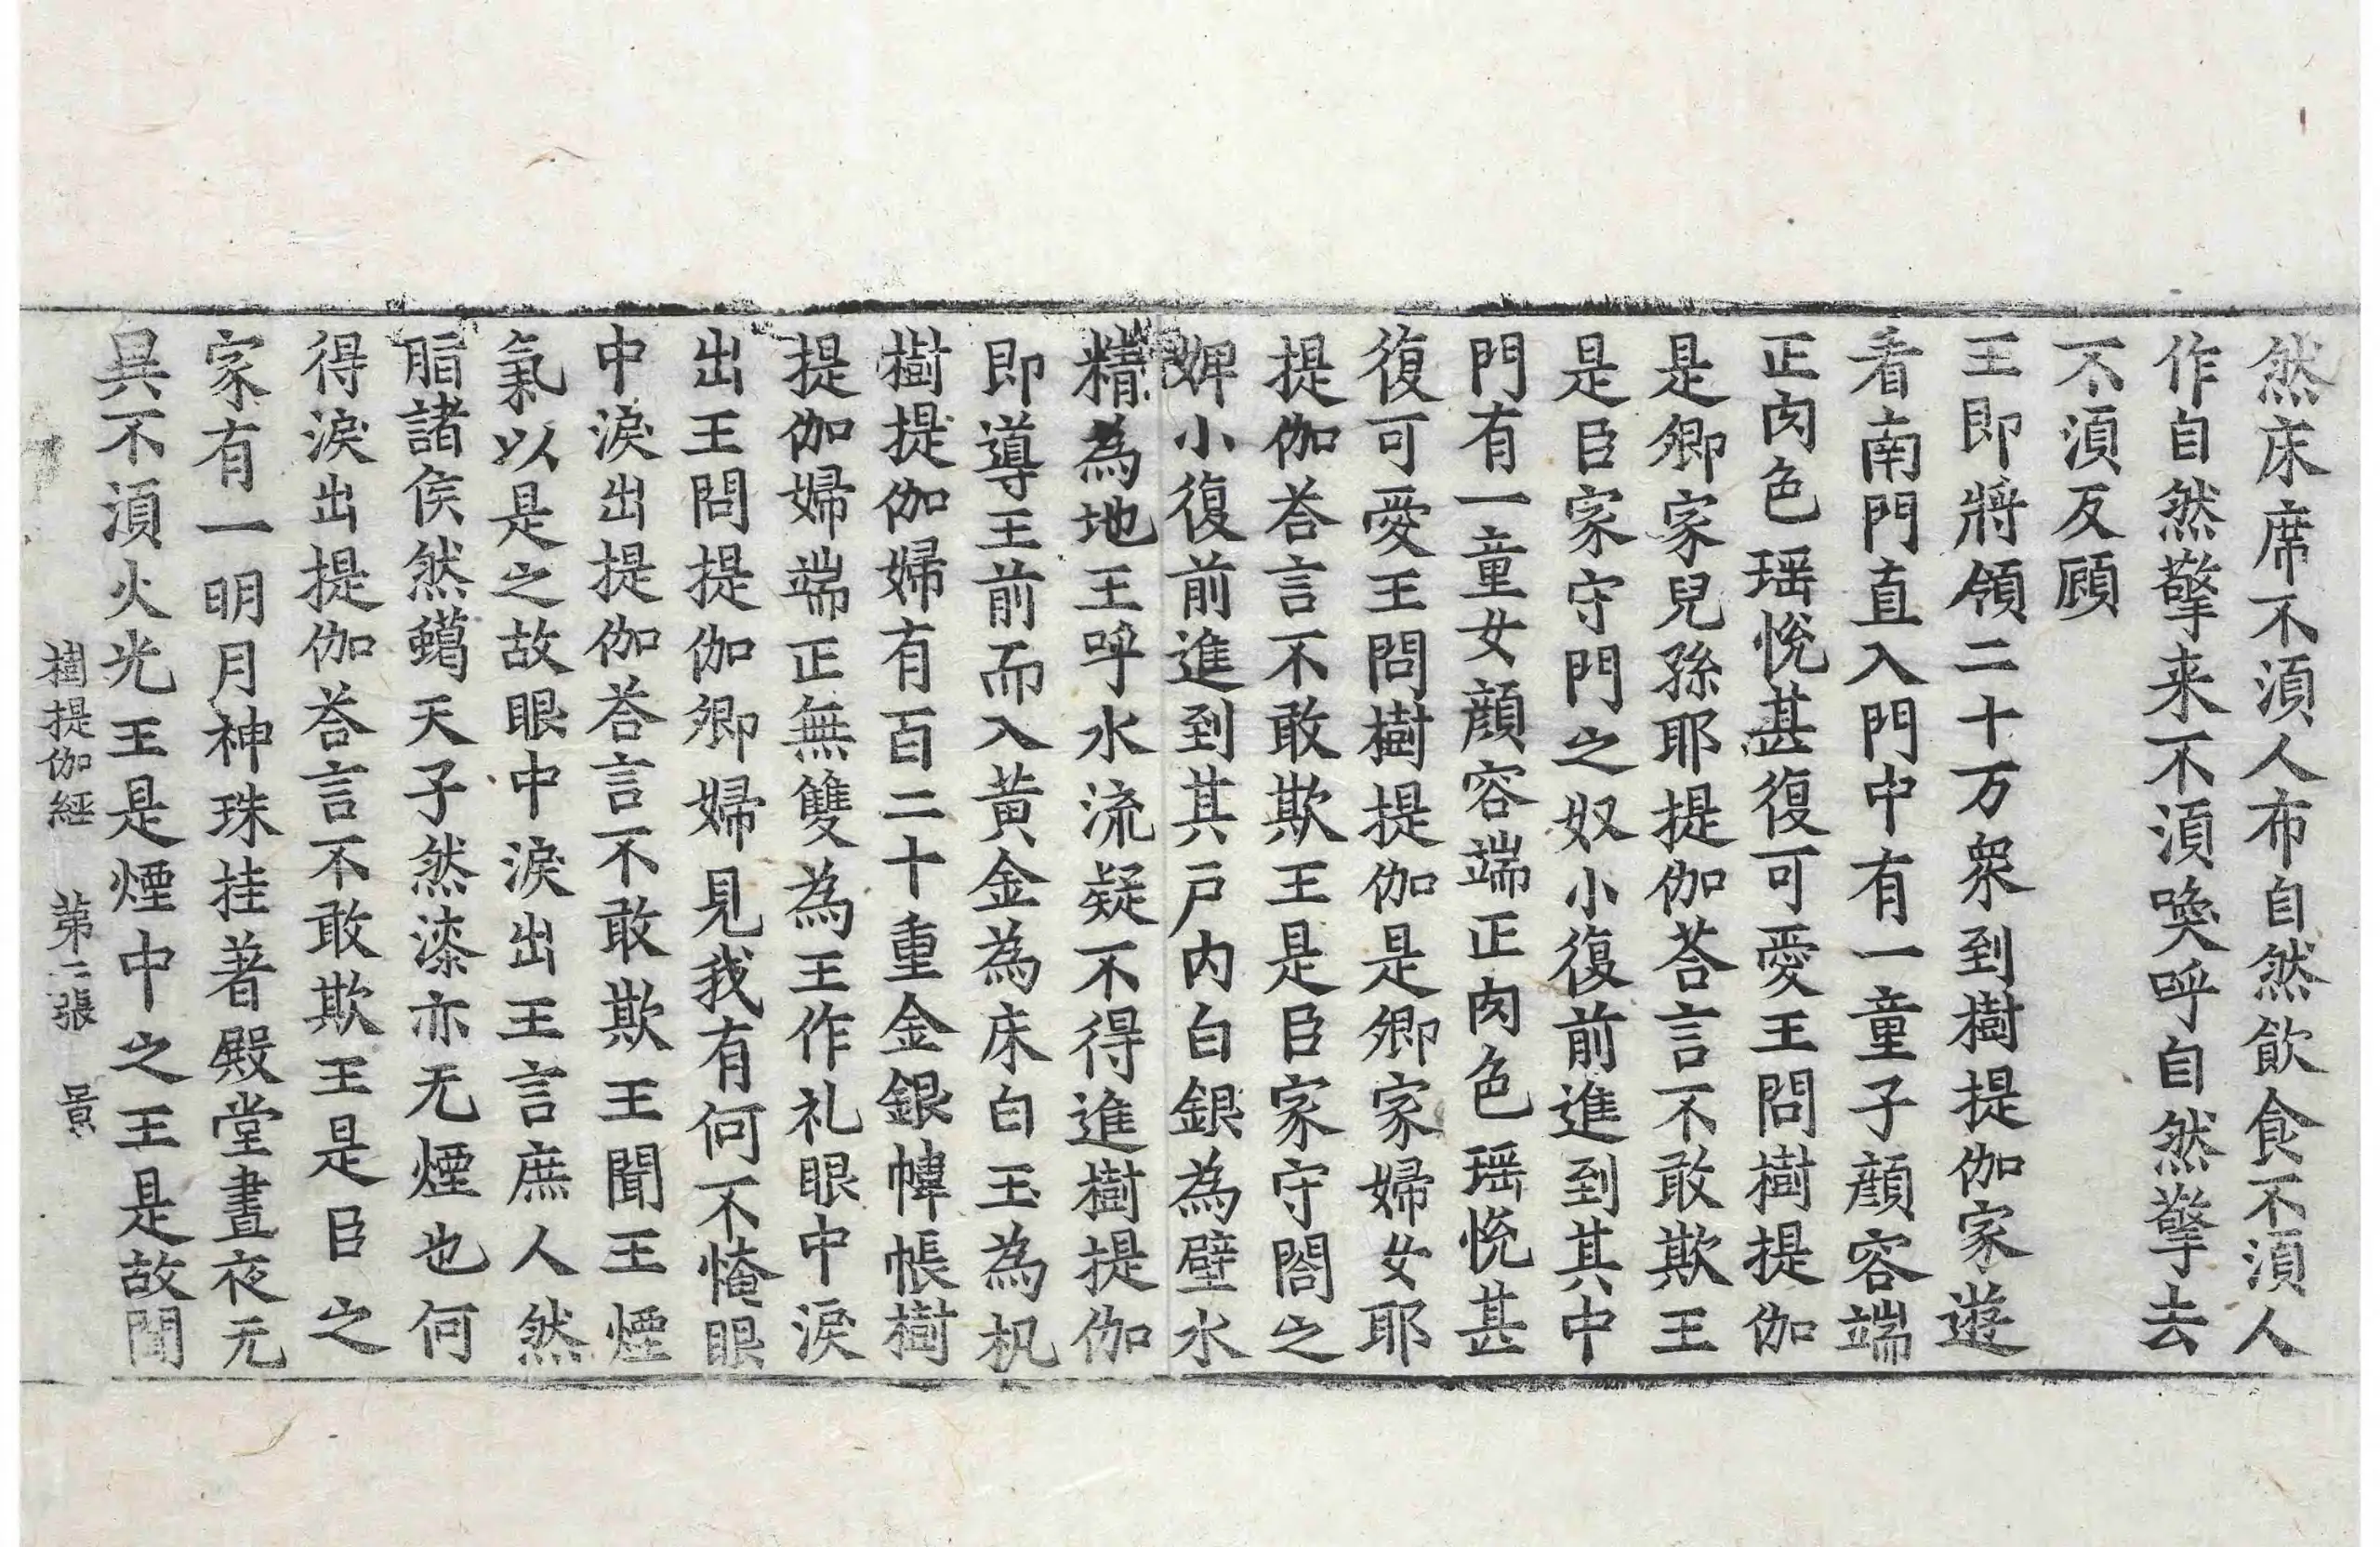 然床席不湏人布自然飲食不湏人
作自然擎来不湏喚呼自然擎去
不湏反顧
王即將領二十万衆到樹提伽家遊
看南門直入門中有一童子顔容端
正肉色瑶悅甚復可愛王問樹提伽
是卿家兒孫耶提伽荅言不敢欺王
是臣家守門之奴小復前進到其中
門有一童女顔容端正肉色瑶悅甚
復可愛王問樹提伽是卿家婦女耶
提伽荅言不敢欺王是臣家守閤之
婢小復前進到其戶内白銀為壁水
精為地王呼水流疑不得進樹提伽
即導王前而入黃金為床白玉為机
樹提伽婦有百二十重金銀幃帳樹
提伽婦端正無雙為王作礼眼中淚
出王問提伽卿婦見我有何不㤿眼
中淚出提伽荅言不敢欺王聞王煙
氣以是之故眼中淚出王言庶人然
脂諸侯然蠟天子然漆亦无煙也何
得淚出提伽荅言不敢欺王是臣之
家有一明月神珠挂著殿堂晝夜无
異不湏火光王是煙中之王是故聞
樹提伽經　苐二張　景